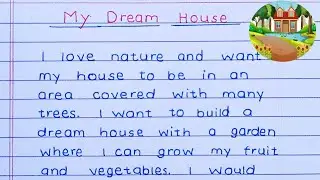 My Dream House
I love nature and want
my house to be in an
area covered with many
trees. I want to build a
dream house with a garden
where I can grow my fruit
and vegetables. I would